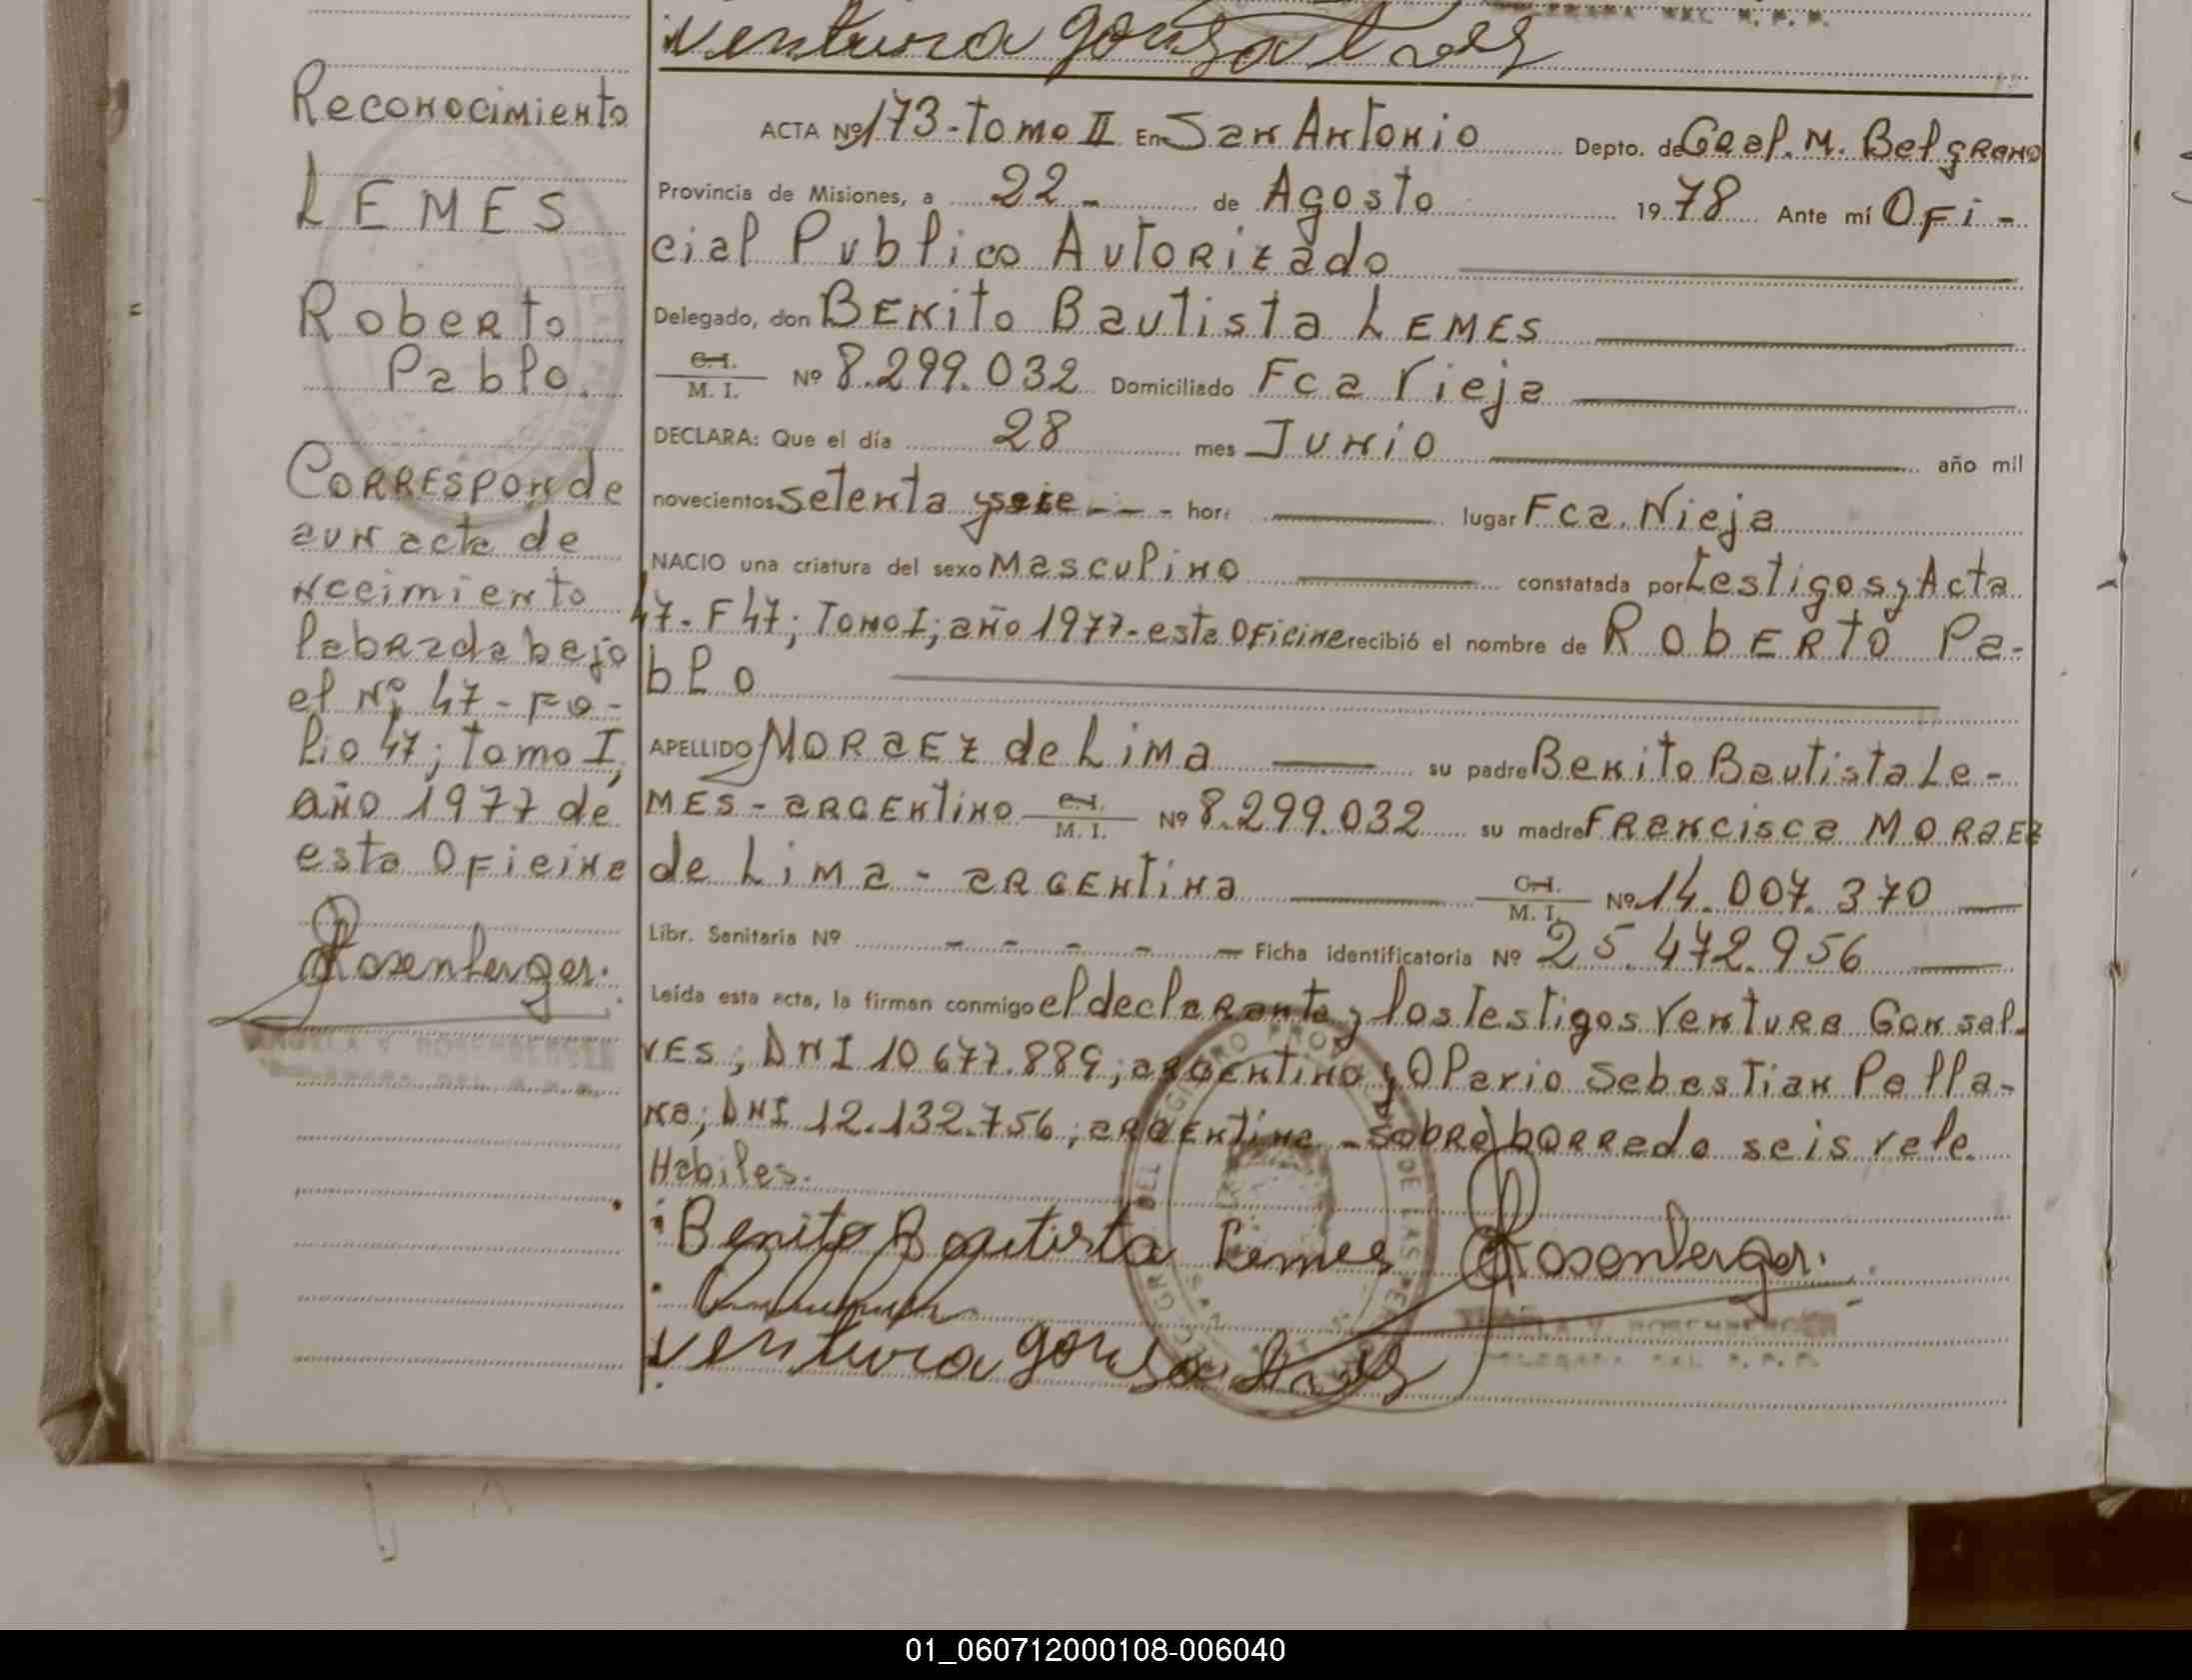 Ventura Gonsalves
Reconocimiento
LEMES
Roberto
Pablo.
Corresponde
a un acta de
nacimiento
labrada bajo
el Nº 47 - Fo-
lio 47; Tomo I,
año 1977 de
esta Oficina
Rosenberger.
ACTA Nº 173 - Tomo II En San Antonio Depto. de Gral. M. Belgrano
Provincia de Misiones, a 22 - de Agosto 19 78 Ante mí Ofi-
cial Publico Autorizado
Delegado, don Benito Bautista LEMES
C. I.
M. I. Nº 8.299.032 Domiciliado Fca Vieja
DECLARA: Que el día 28 mes Junio año mil
novecientos setenta y seis - - - hor: lugar Fca. Vieja
NACIO una criatura del sexo Masculino constatada por Testigos y Acta
47 - F 47; Tomo I; año 1977 - esta Oficina recibió el nombre de ROBERTO Pa-
blo
APELLIDO MORAEZ de Lima su padre Benito Bautista Le-
MES - argentino C. I.
M. I. Nº 8.299.032 su madre Francisca MORAEZ
de Lima - argentina C. I.
M. I. Nº 14.007.370
Libr. Sanitaria Nº - - - - - Ficha identificatoria Nº 25.472.956
Leída esta acta, la firman conmigo el declarante y los Testigos Ventura Gonsal-
ves; DNI 10677.889; argentino y Olario Sebastian Pella-
na; DNI 12.132.756; argentino - sobre borrado seis vale.
Habiles.
Benito Bautista Lemes Rosenberger.
Ventura Gonsalves
01_060712000108-006040